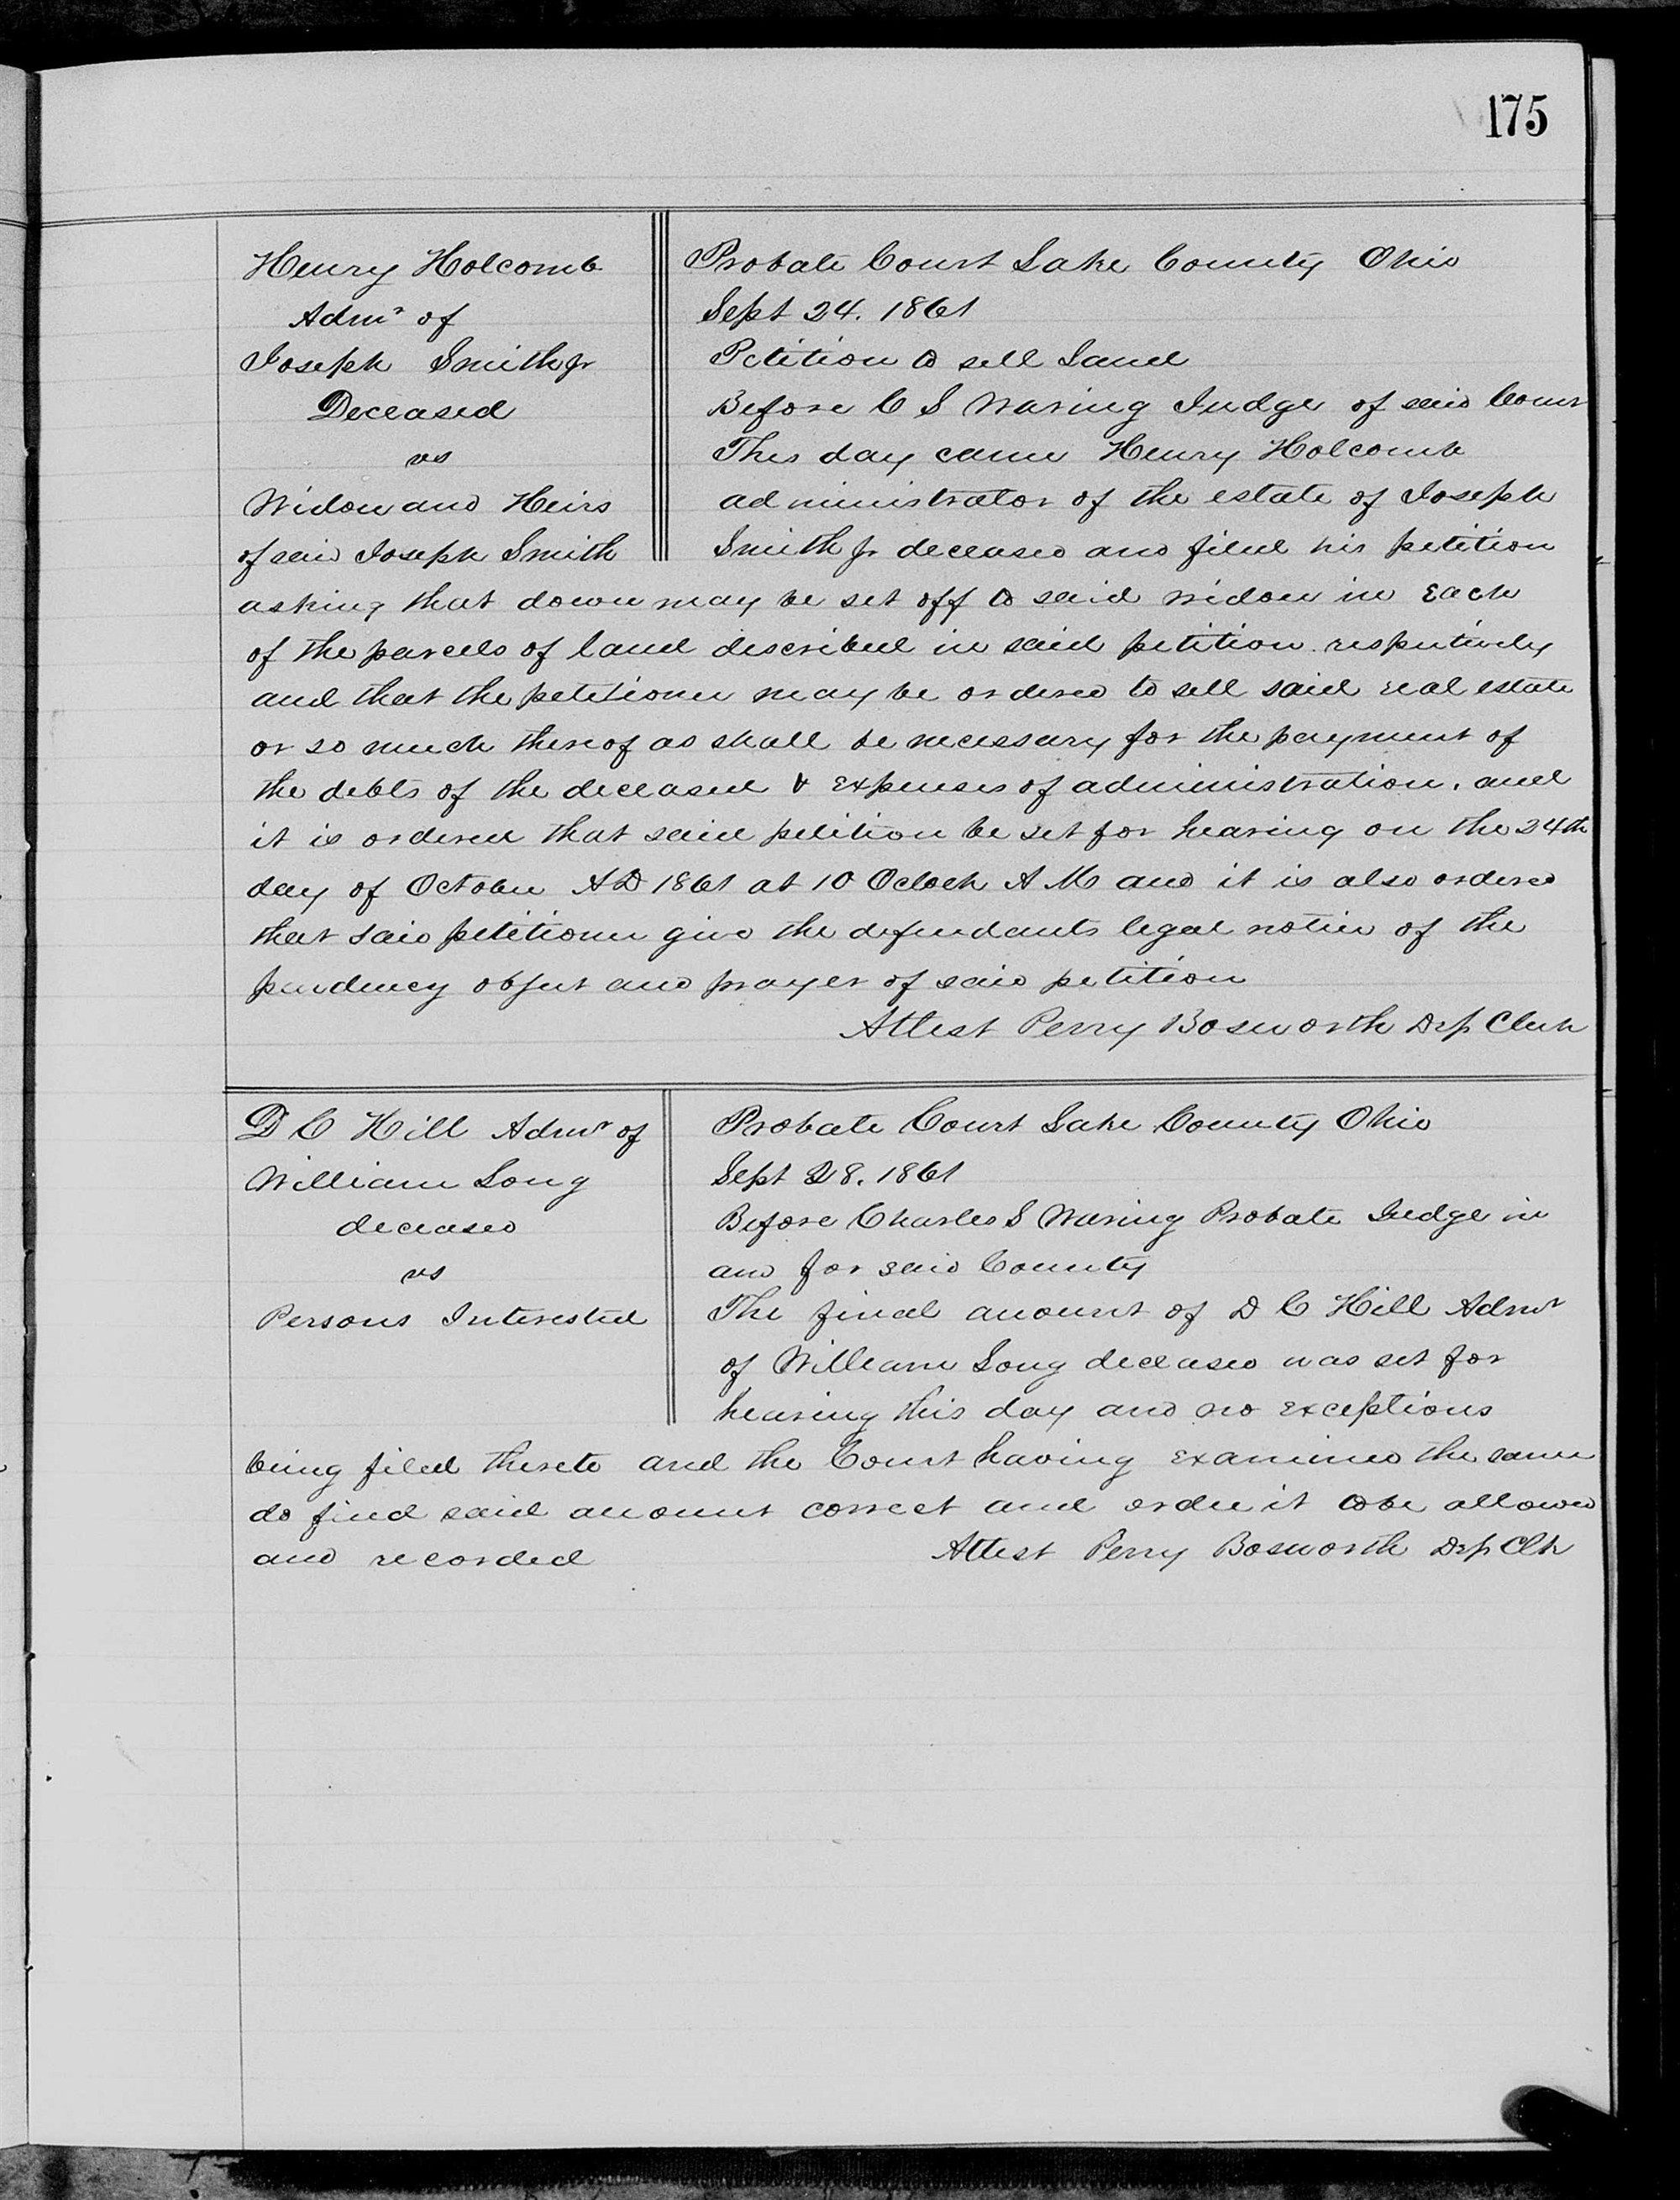 175
Henry Holcomb
Admr of
Joseph Smith Jr
Deceased
vs
Widow and Heirs
of said Joseph Smith
Probate Court Lake County Ohio
Sept 24. 1861
Petition to sell Land
Before C S Waring Judge of said Court
This day came Henry Holcomb
administrator of the estate of Joseph
Smith Jr deceased and filed his petition
asking that dower may be set off to said widow in Each
of the parcels of land described in said petition respectively
and that the petitioner may be ordered to sell said real estate
or so much thereof as shall be necessary for the payment of
the debts of the deceased & Expenses of administration. and
it is ordered that said petition be set for hearing on the 24th
day of October AD 1861 at 10 Oclock A M and it is also ordered
that said petitioner give the defendants legal notice of the
pendency object and prayer of said petition
Attest Perry Bosworth Dep Clerk
D C Hill Admr of
William Long
deceased
vs
Persons Interested
Probate Court Lake County Ohio
Sept 28. 1861
Before Charles S Waring Probate Judge in
and for said County
The final account of D C Hill Admr
of William Long deceased was set for
hearing this day and no exceptions
being filed thereto and the Court having Examined the same
do find said account correct and order it to be allowed
and recorded
Attest Perry Bosworth Dep Clk